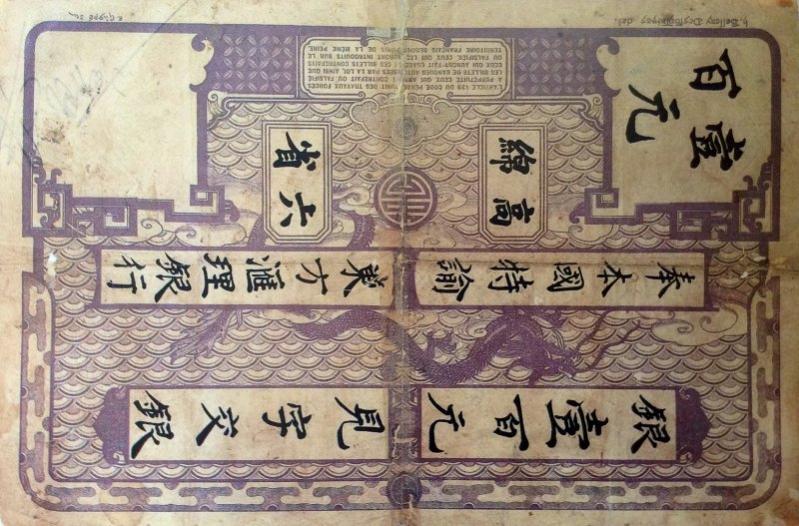 壹百元
高綿
六省
奉本國特諭
東方滙理銀行
銀壹百元
見字交銀
L'ARTICLE 139 DU CODE PENAL PUNIT DES TRAVAUX FORCES
A PERPETUITE CEUX QUI AYANT CONTREFAIT OU FALSIFIE
LES BILLETS DE BANQUES AUTORISEES PAR LA LOI, AINSI QUE
CEUX QUI AURONT FAIT USAGE DE CES BILLETS CONTREFAITS
OU FALSIFIES, CEUX QUI LES AURONT INTRODUITS SUR LE
TERRITOIRE FRANCAIS SERONT PUNIS DE LA MEME PEINE